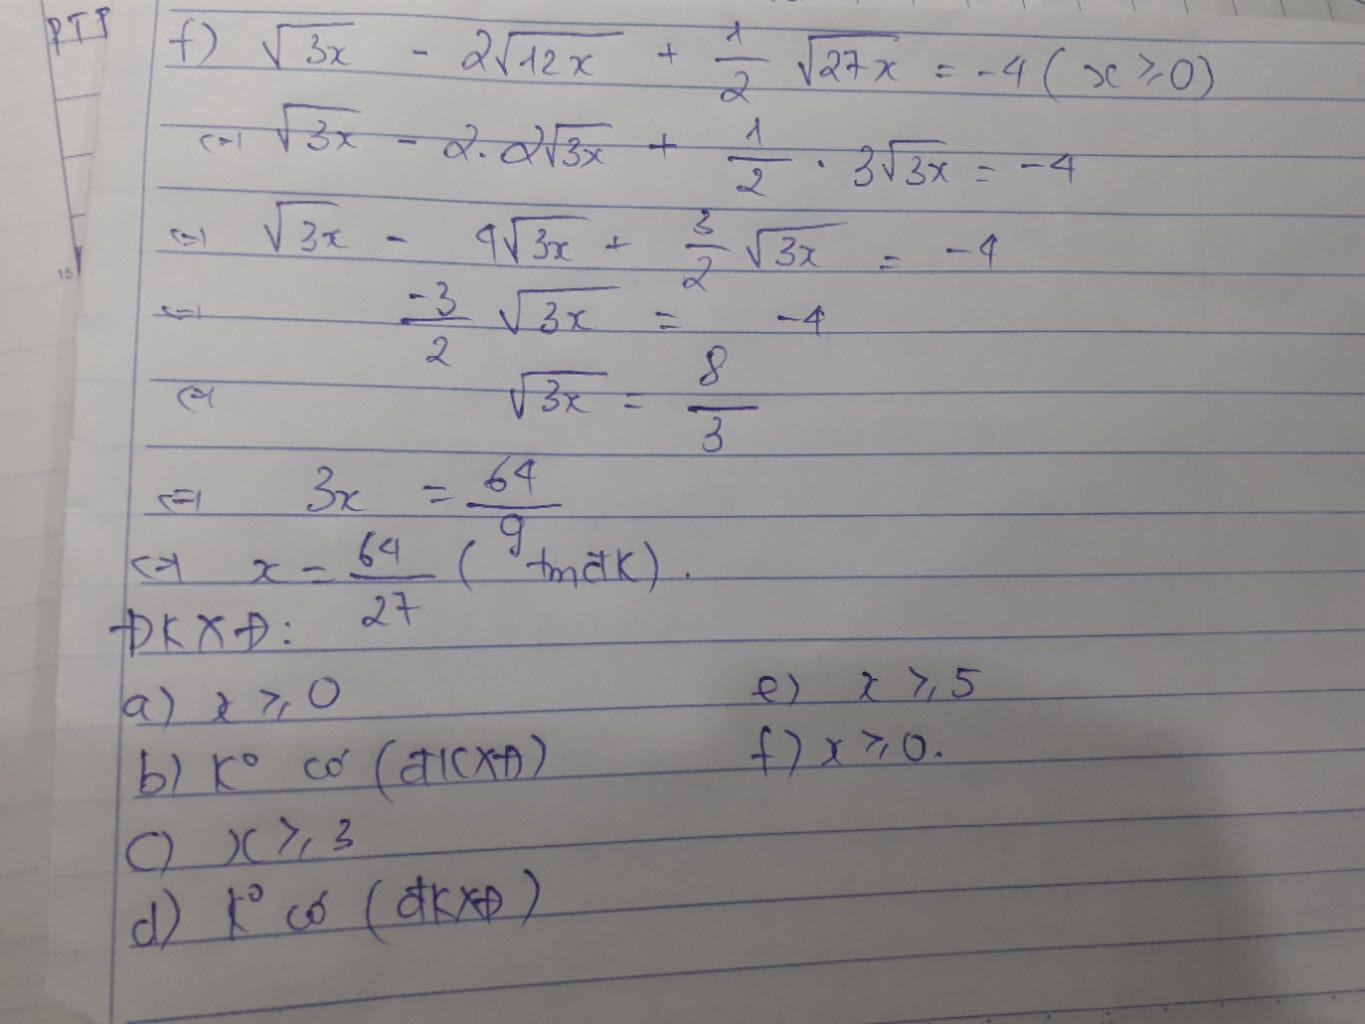 PTT
f) √3x - 2√12x + 1/2 √27x = -4 ( x ≥ 0)
<=> √3x - 2. 2√3x + 1/2 . 3√3x = -4
<=> √3x - 4√3x + 3/2 √3x = -4
<=> -3/2 √3x = -4
<=> √3x = 8/3
<=> 3x = 64/9
<=> x = 64/27 ( tmđk) .
ĐKXĐ:
a) x ≥ 0
e) x ≥ 5
b) K° có (đkxđ)
f) x ≥ 0.
c) x ≥ 3
d) K° có (đkxđ)
15